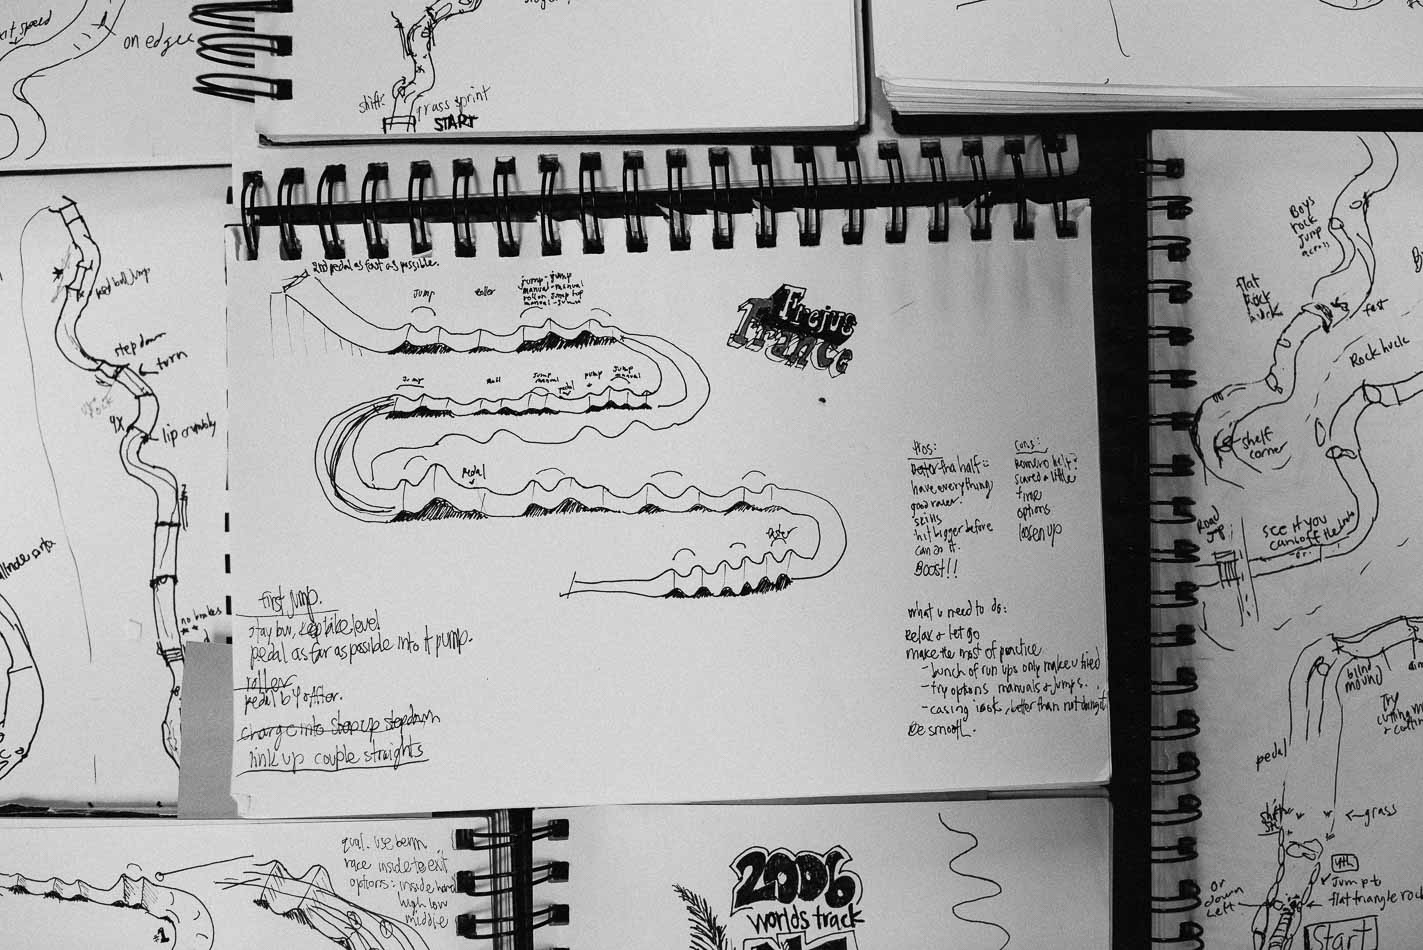 exit speed
on edge
shift
grass sprint
START
2nd pedal as fast as possible.
Jump
roller
jump-jump
manual-manual
roll on jump tup
manual-jump
Frejus
France
Jump
Roll
Jump
manual
pedal
pump
Jump
manual
pedal
faster
Pros:
Better tha half
have everything
good racer.
skills
hit bigger before
can do it.
Boost!!
cons:
scared a little
options
loosen up
what u need to do:
Relax & let go
make the most of practice
- bunch of run ups only make u tired
- try options manuals & jumps.
- casing is ok, better than not doing it
Be smooth.
first jump.
stay low, keep bike level
pedal as far as possible into it pump.
roller
pedal b4 & after.
charge into step up stepdown
link up couple straights
red bull jump
stepdown
turn
4X
lip crumbly
no brakes
Boys
rock
jump
across
flat
Rock
huck
fast
Rock huck
shelf
corner
Road
Jump
SEE if you
can
blind
mound
Try
pedal
grass
4th
Jump to
flat triangle rock
or
down
left
Start
qual. use berm
race inside to exit
options: inside hard
high low
middle
#1
2006
worlds track